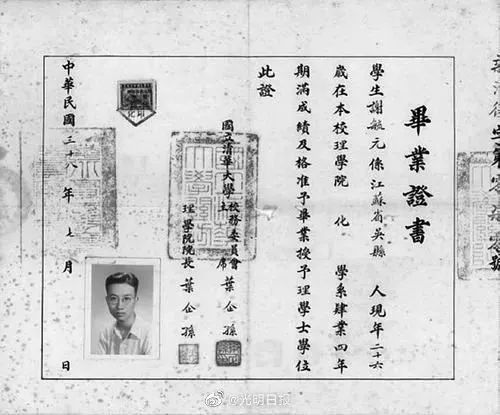 畢業證書
學生謝毓元係江蘇省吳縣人現年二十六
歲在本校理學院化學系肄業四年
期滿成績及格准予畢業授予理學士學位
此證
國立清華大學校務委員會主席葉企孫
理學院院長葉企孫
中華民國三十八年七月日
@光明日报